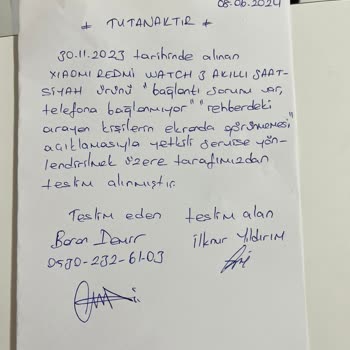 08.06.2024
* TUTANAKTIR *
30.11.2023 tarihinde alınan
XIAOMI REDMI WATCH 3 AKILLI SAAT-
SİYAH ürünü "bağlantı sorunu var,
telefona bağlanmıyor" "rehberdeki
arayan kişilerin ekranda görünmemesi"
açıklamasıyla yetkili servise yön-
lendirilmek üzere tarafımızdan
teslim alınmıştır.
Teslim eden teslim alan
Baran Demir İlknur Yıldırım
0530-232-61-03